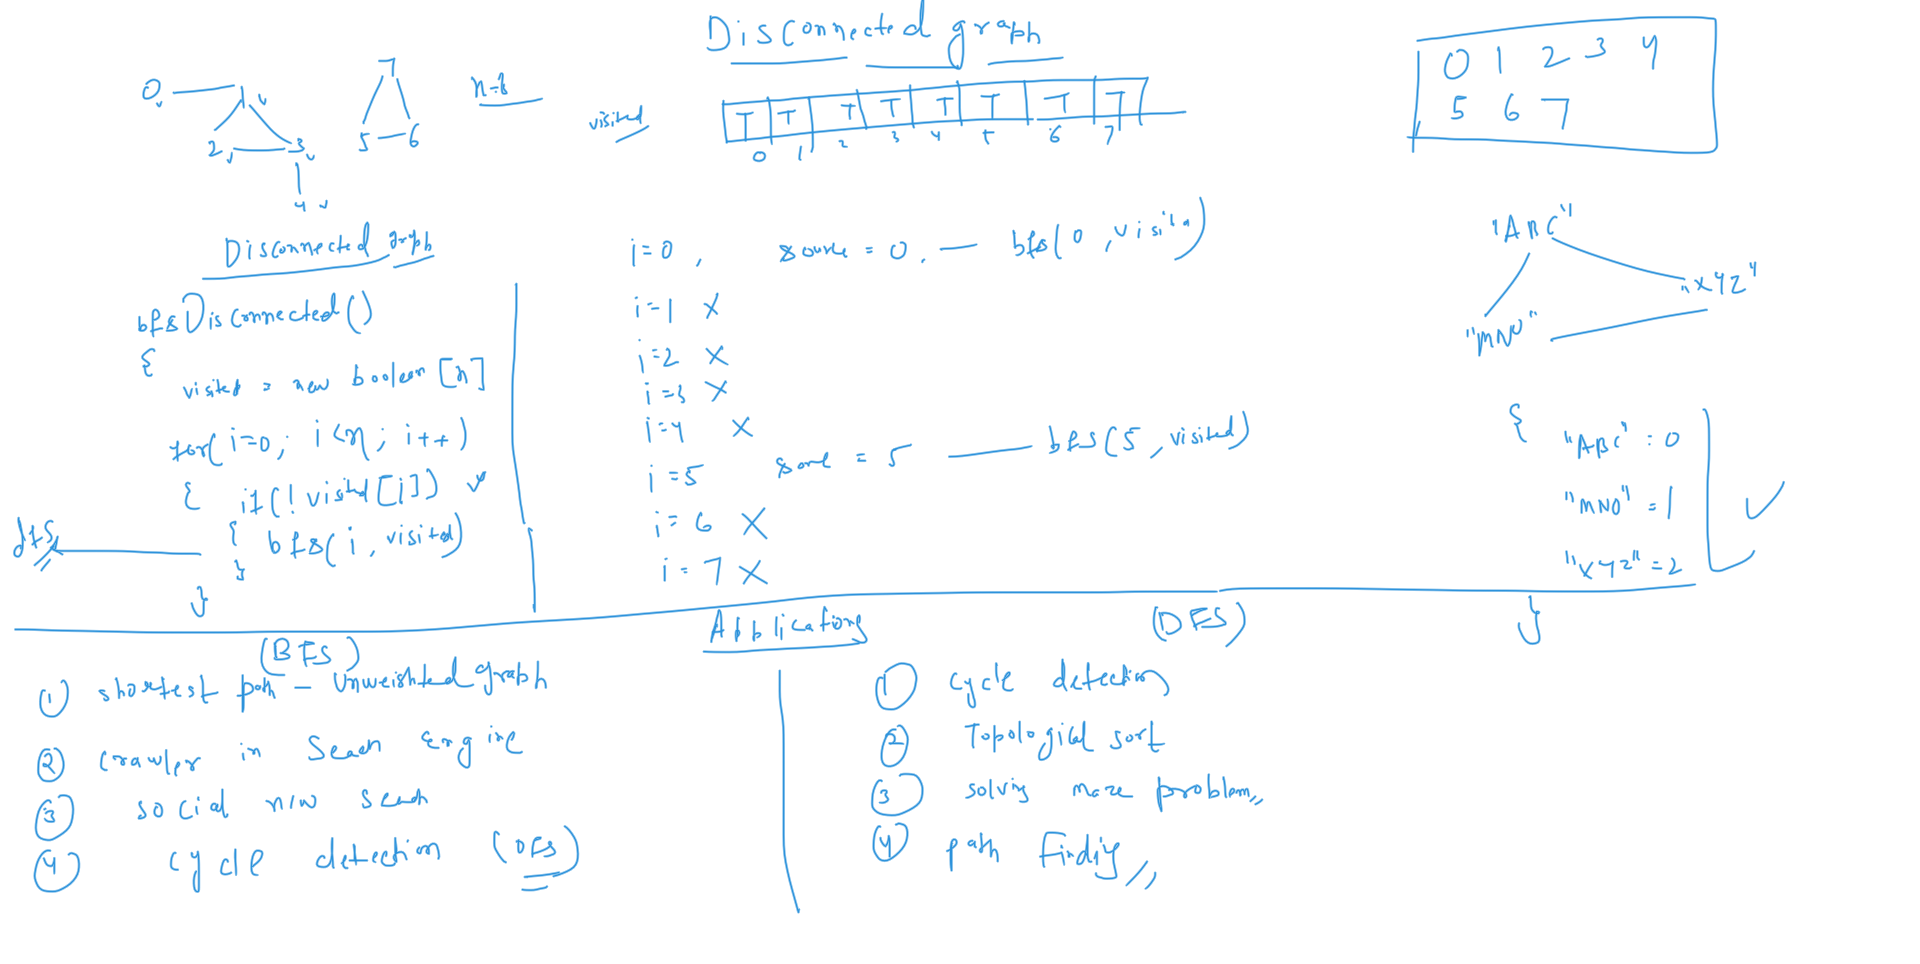 Disconnected graph
0 1 2 3 4
5 6 7
0 1
2 3
4
7
5 6
n=8
visited
T T T T T T T T
0 1 2 3 4 5 6 7
Disconnected graph
bfsDisconnected()
{
visited = new boolean [n]
for( i=0; i<n; i++)
{ if(! visited[i])
{ bfs( i, visited)
}
}
dfs
i=0 , source = 0, — bfs( 0 ,visited)
i=1 X
i=2 X
i=3 X
i=4 X
i=5 source = 5 — bfs(5, visited)
i=6 X
i=7 X
"ABC"
"XYZ"
"MNO"
{
"ABC" : 0
"MNO" = 1
"XYZ" = 2
}
Applications
(BFS)
① shortest path – Unweighted graph
② crawler in Seach engine
③ social n/w seach
④ cycle detection (DFS)
(DFS)
① cycle detection
② Topological sort
③ solving maze problem
④ path Finding